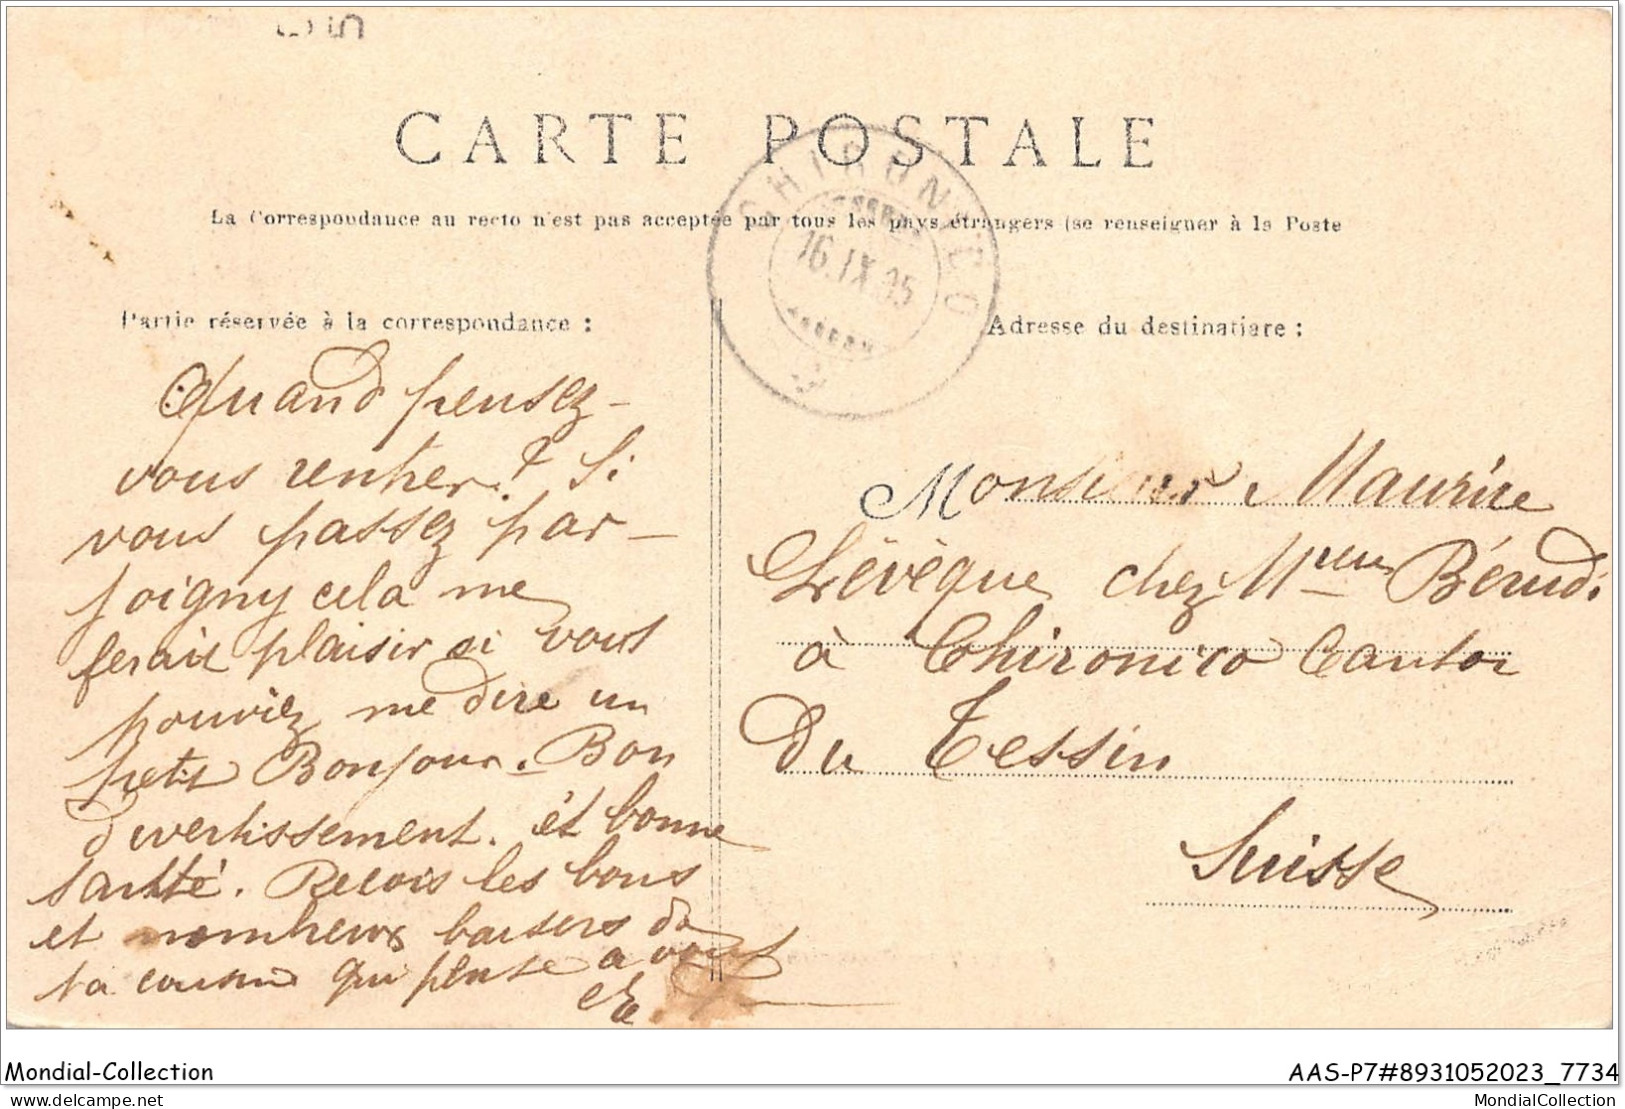 CARTE POSTALE
La Correspondance au recto n'est pas acceptée par tous les pays étrangers (se renseigner à la Poste
CHIRONICO
16.IX.05
Partie réservée à la correspondance :
Quand pensez-
vous rentrer? Si
vous passez par
Joigny cela me
ferait plaisir si vous
pouviez me dire un
petit Bonjour. Bon
divertissement. et bonne
santé. Reçois les bons
et nombreux baisers de
ta cousine qui pense a vous
Adresse du destinatiare :
Monsieur Maurice
Lévêque chez Mme
à Chironico Canton
du Tessin
Suisse
Mondial-Collection
AAS-P7#8931052023_7734
delcampe.net
MondialCollection